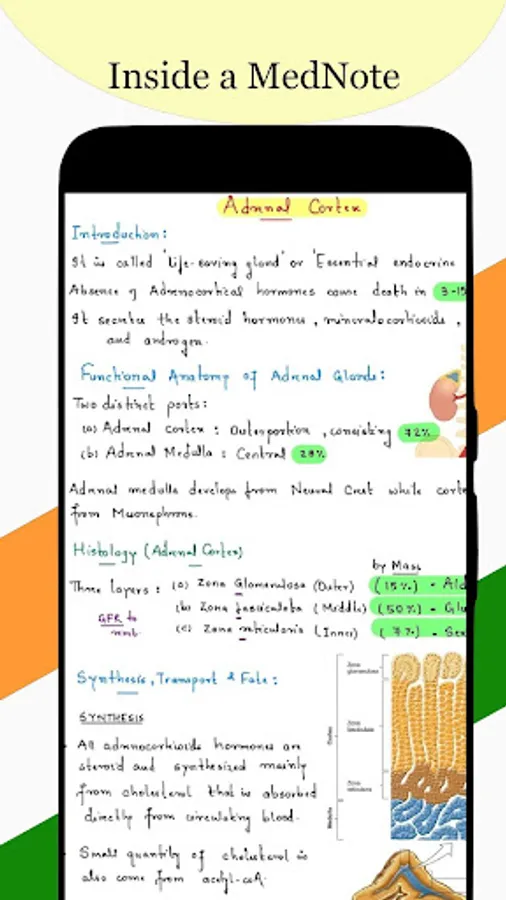 Inside a MedNote
Adrenal Cortex
Introduction:
It is called 'Life-saving gland' or 'Essential endocrine
Absence of Adrenocortical hormones cause death in 3-15
It secretes the steroid hormones, mineralocorticoids,
and androgen.
Functional Anatomy of Adrenal Glands:
Two distinct parts:
(a) Adrenal Cortex: Outer portion, consisting 72%
(b) Adrenal Medulla: Central 28%
Adrenal medulla develops from Neural Crest while corte
from Mesonephrons.
Histology (Adrenal Cortex)
by Mass
Three layers: (a) Zona Glomerulosa (Outer) (15%) - Ald
(b) Zona fasciculata (Middle) (50%) - Glu
(c) Zona reticularis (Inner) (7%) - Sex
GFR to
remb.
Synthesis, Transport & Fate:
SYNTHESIS
All adrenocorticoids hormones are
steroid and synthesized mainly
from cholesterol that is absorbed
directly from circulating blood.
Small quantity of cholesterol is
also come from acetyl-coA.
Zona
glomerulosa
Zona
fasciculata
Zona
reticularis
Cortex
Medulla